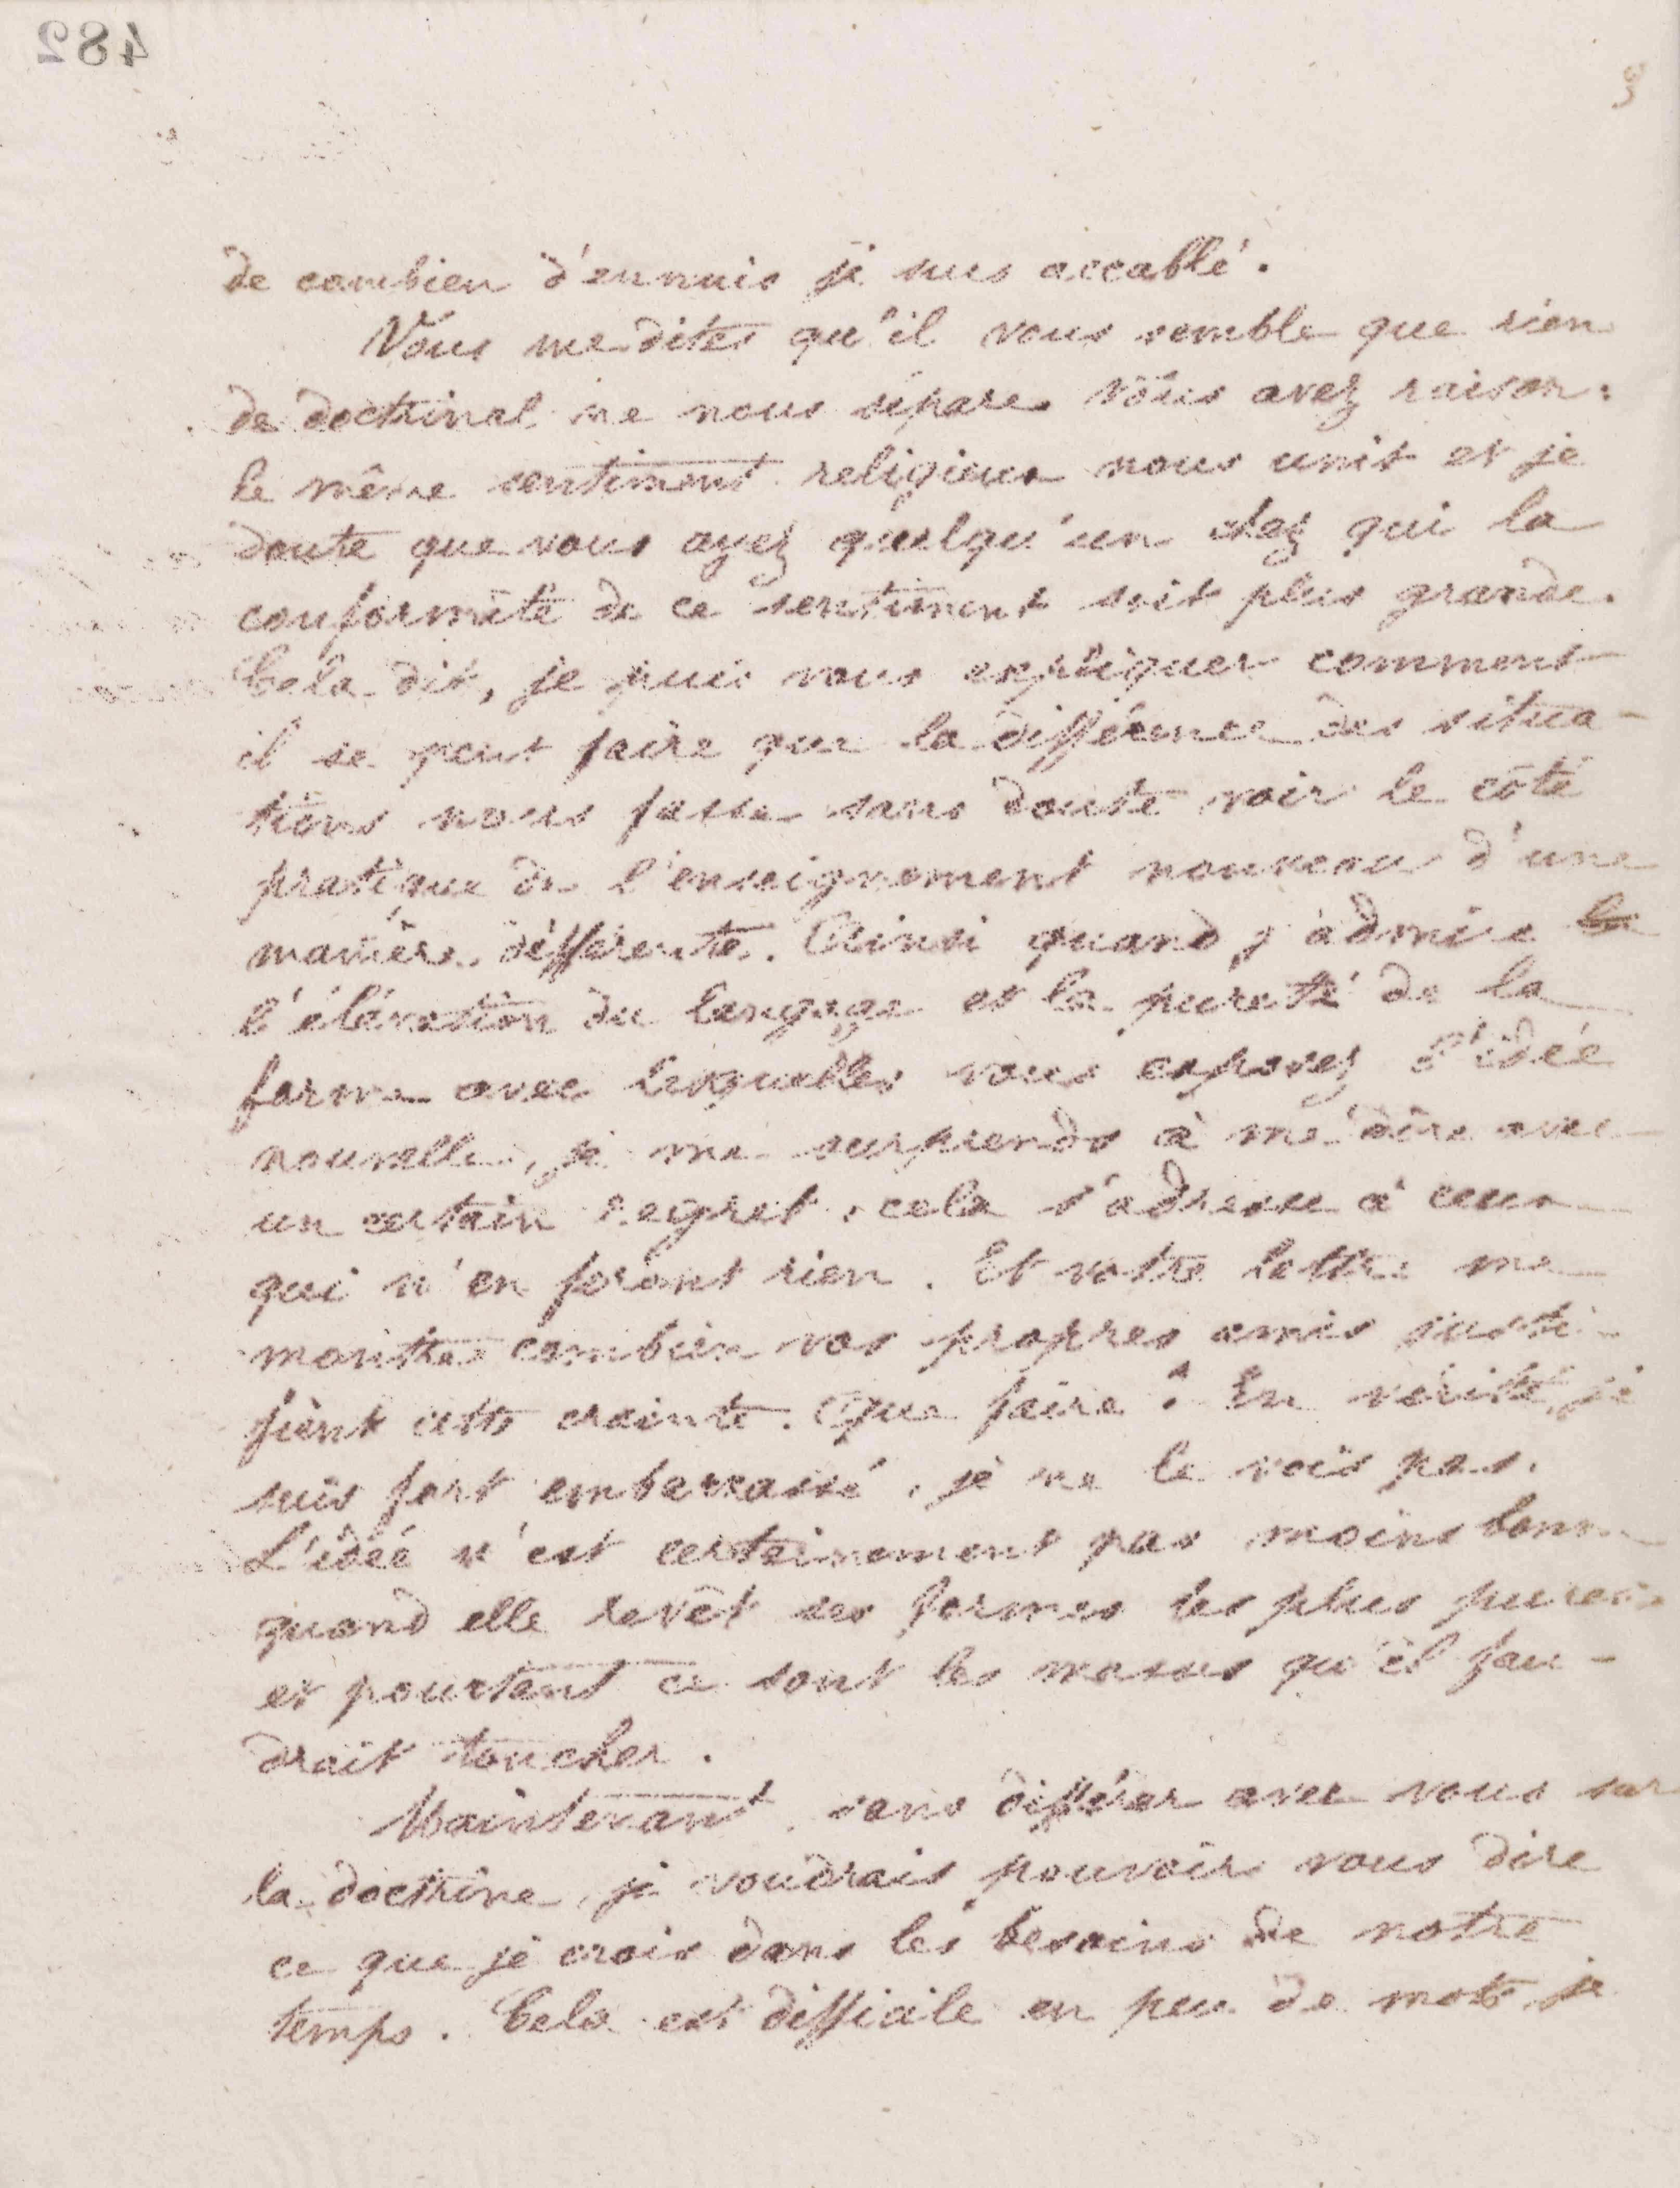 482
3
de combien d'ennuis je suis accablé.
Vous me dites qu'il vous semble que rien
de doctrinal ne nous sépare. Vous avez raison :
le même sentiment religieux nous unit et je
doute que vous ayez quelqu'un chez qui la
conformité de ce sentiment soit plus grande.
Cela dit, je puis vous expliquer comment
il se peut faire que la différence des situa-
tions nous fasse sans doute voir le côté
pratique de l'enseignement nouveau d'une
manière différente. Ainsi quand j'admire la
l'élévation du langage et la pureté de la
forme avec lesquelles vous exposez l'idée
nouvelle, je me surprends à me dire avec
un certain regret, cela s'adresse à ceux
qui n'en feront rien. Et votre lettre me
montre combien vos propres amis justi-
fient cette crainte. Que faire ? En vérité, je
suis fort embarrassé, je ne le vois pas.
L'idée n'est certainement pas moins bonne
quand elle revêt ses formes les plus pures
et pourtant ce sont les masses qu'il fau-
drait toucher.
Maintenant, sans différer avec vous sur
la doctrine, je voudrais pouvoir vous dire
ce que je crois dans les besoins de notre
temps. Cela est difficile en peu de mots, je